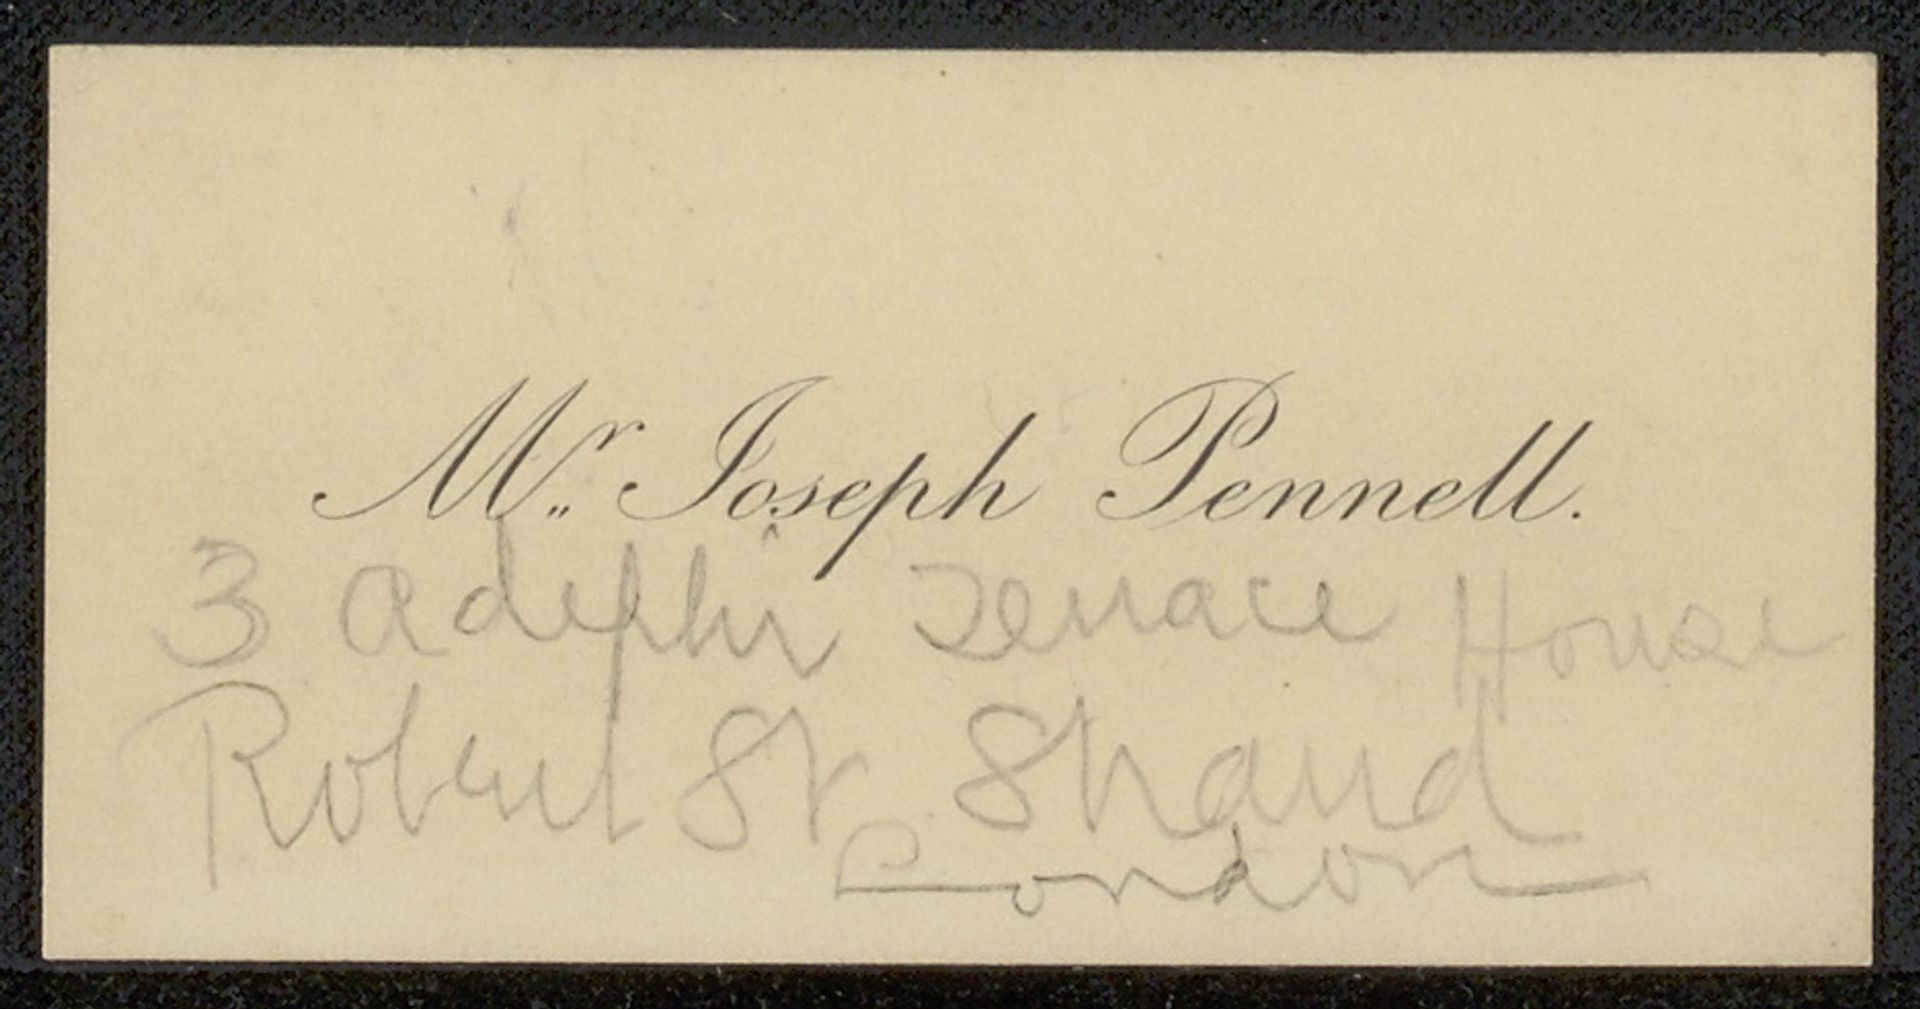 Mr. Joseph Pennell.
3 Adelphi Terrace House
Robert St Strand
London